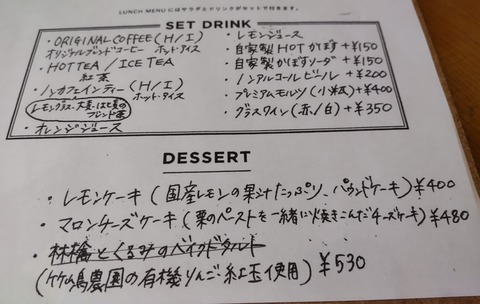 LUNCH MENU にはサラダとドリンクがセットで付きます。
SET DRINK
・ORIGINAL COFFEE (H/I)
オリジナルブレンドコーヒー ホット・アイス
・HOT TEA / ICE TEA
紅茶
・ノンカフェインティー (H/I)
ホット・アイス
レモングラス、大麦、はと麦の
ブレンド茶
・オレンジジュース
・レモンジュース
・自家製HOTかぼす+¥150
・自家製かぼすソーダ+¥150
・ノンアルコールビール+¥200
・プレミアムモルツ(小瓶)+¥400
・グラスワイン(赤/白)+¥350
DESSERT
・レモンケーキ(国産レモンの果汁たっぷり、パウンドケーキ)¥400
・マロンチーズケーキ(栗のペーストを一緒に焼きこんだチーズケーキ)¥480
・林檎とくるみのベイクドタルト
(竹嶋農園の有機りんご紅玉使用) ¥530